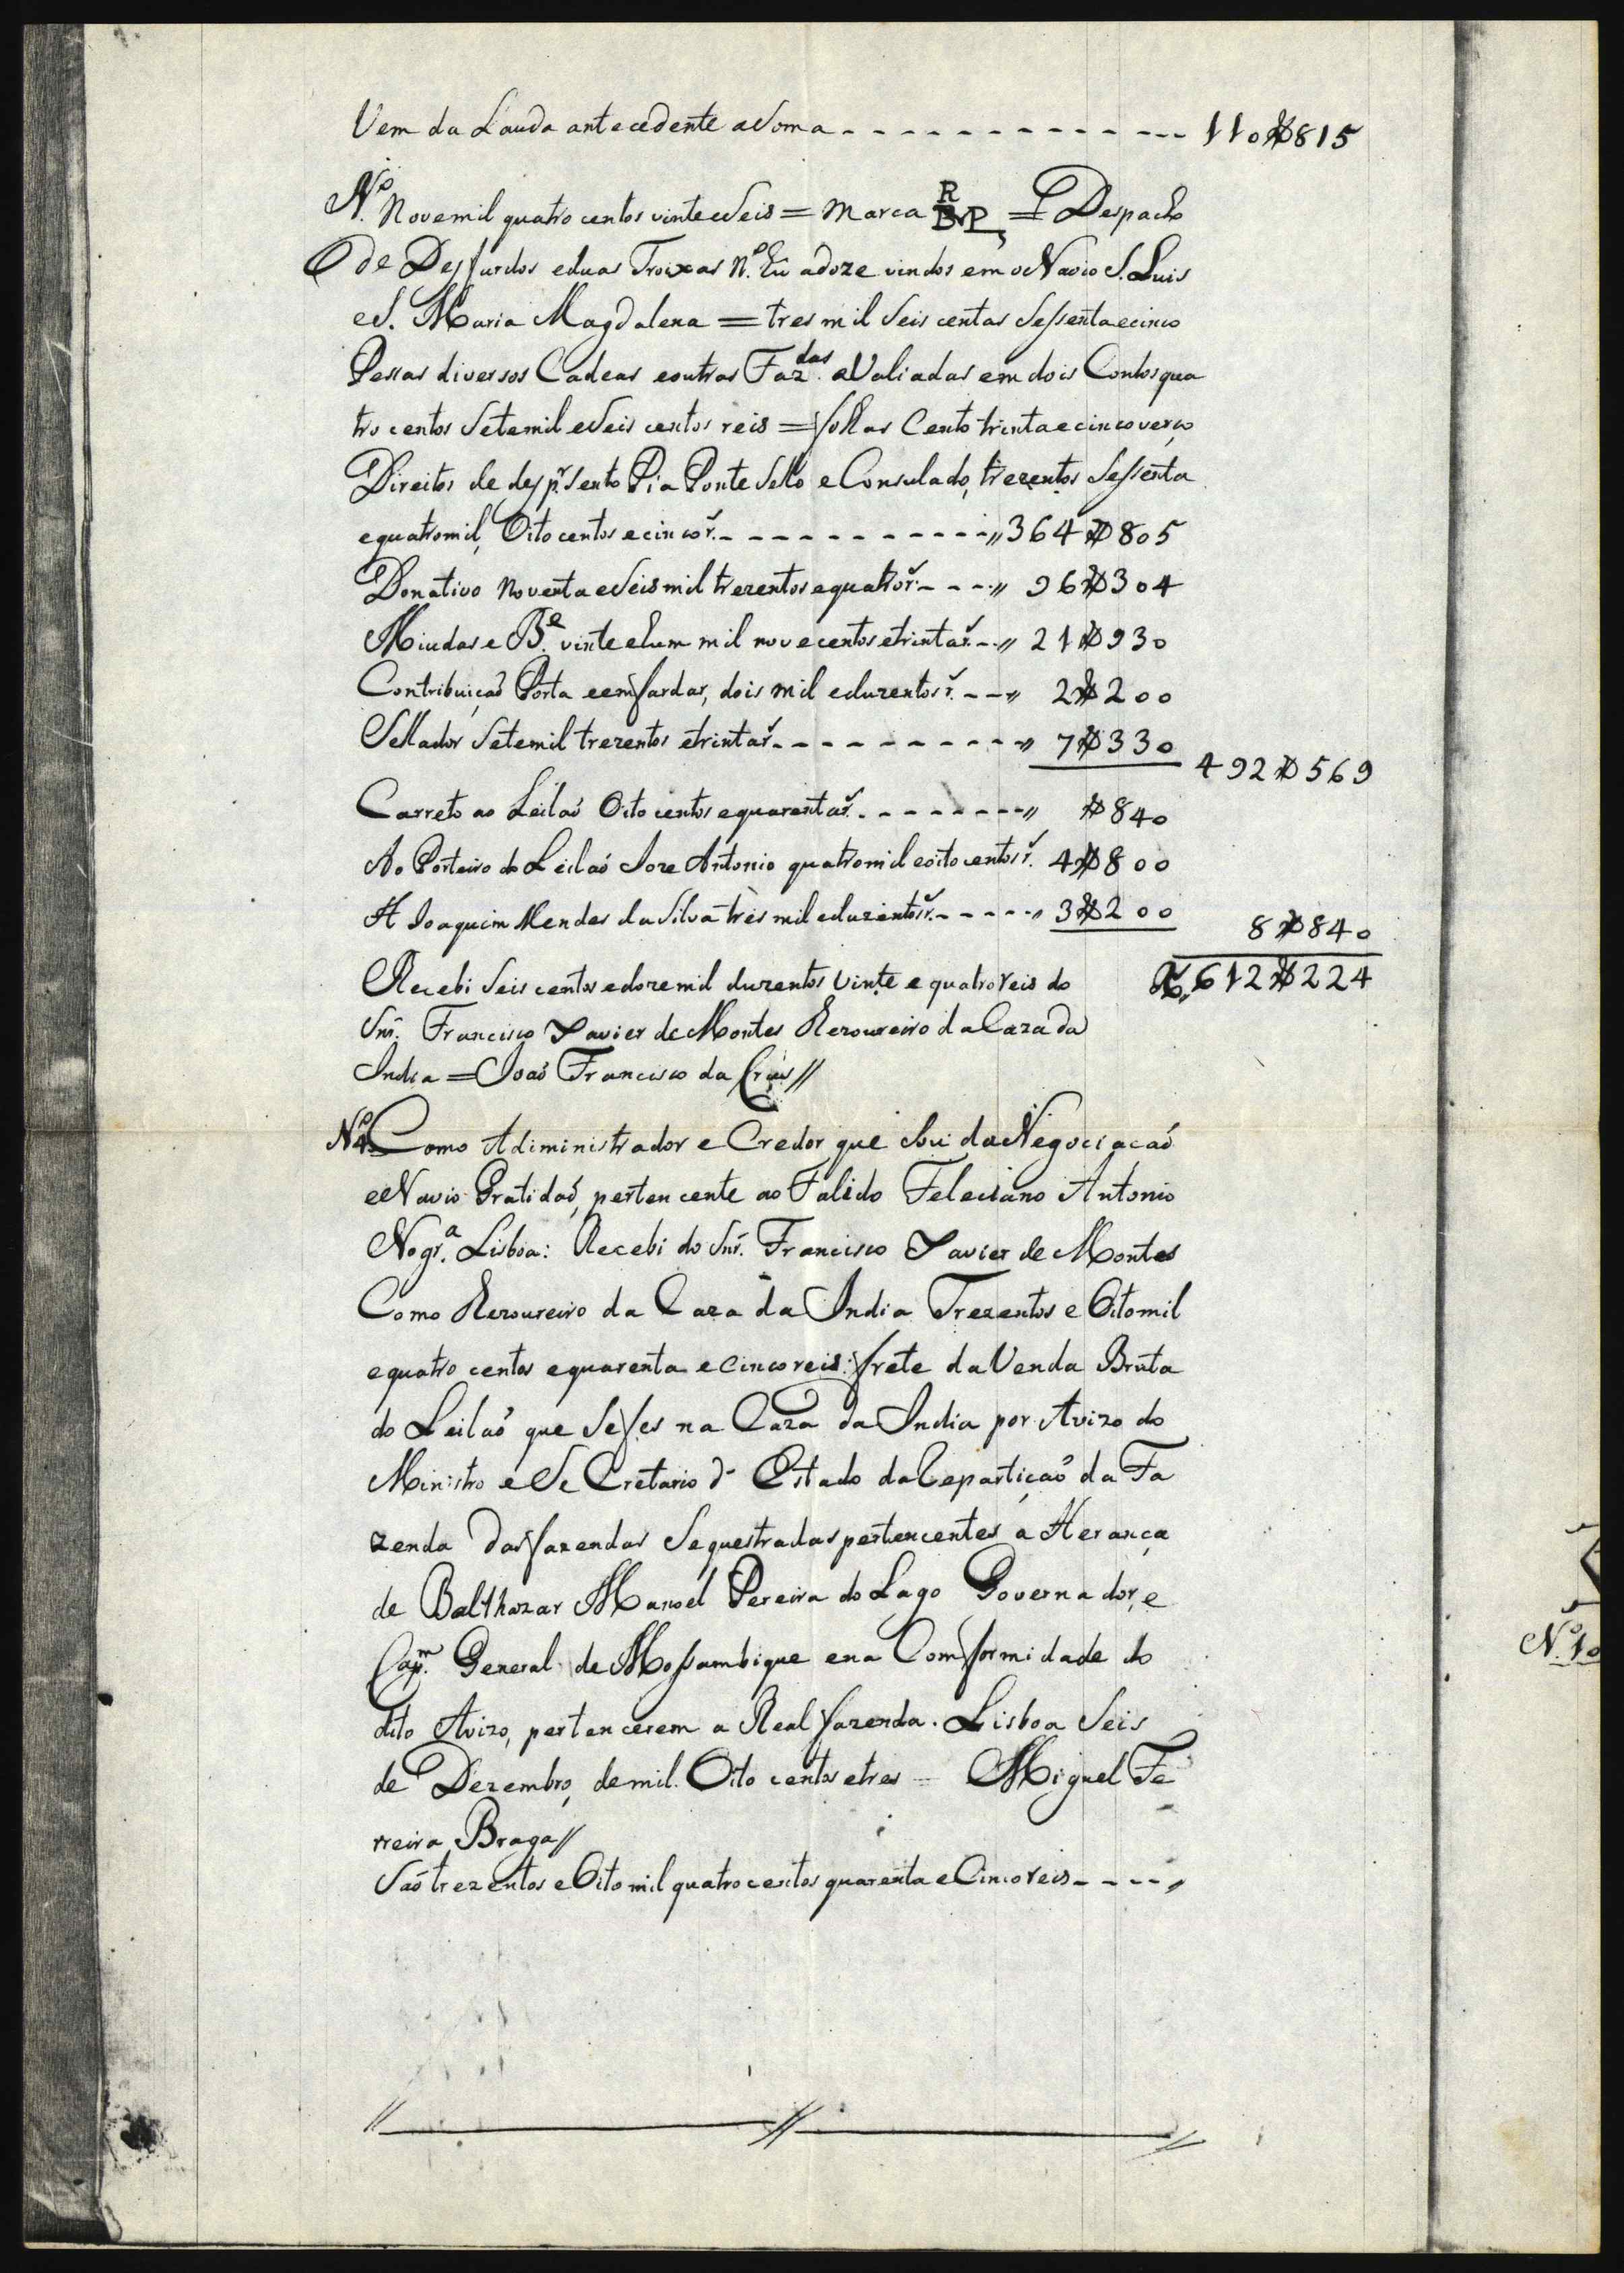 Vem da Lauda antecedente a Soma - - - - - - - - - - - - - 110$815
N.º Nove mil quatro centos vinte e Seis = Marca R BVP = Despacho
de Des fardos e duas Troixas N.º Hũ a doze vindos em o Navio S. Luis
e S. Maria Magdalena = tres mil Seis centas Sessenta e cinco
Pessas diversos Cadeas e outras Faz.das aValiadas em dois Contos qua
tro centos Sete mil e Seis centos reis = folhas Cento trinta e cinco verço
Direitos de desp.r Sento Pia Ponte Sello e Consulado, trezentos Sessenta
e quatro mil, Oito centos e cinco r.s - - - - - - - - - - - „ 364$805
Donativo Noventa e Seis mil trezentos e quatro r.s - - - „ 96$304
Miudas e B.e vinte e hum mil nove centos e trinta r.s - - „ 21$930
Contribuiçaõ Porta e emfardar, dois mil e duzentos r.s - - „ 2$200
Sellador Sete mil trezentos e trinta r.s - - - - - - - - - „ 7$330
492$569
Carreto ao Leilaõ Oito centos e quarenta r.s - - - - - - - „ $840
Ao Porteiro do Leilaõ Joze Antonio quatro mil e oito centos r.s 4$800
A Joaquim Mendes da Silva três mil e duzentos r.s - - - - „ 3$200
8$840
Recebi Seis centos e doze mil duzentos vinte e quatro reis do R.s 612$224
Snr. Francisco Xavier de Montes Rezoureiro da Caza da
India = Joaõ Francisco da Crus //
N.º 4 Como Adiministrador e Credor que Sou da Negociacaõ
e Navio Gratidaõ, pertencente ao Falido Feleciano Antonio
Nogr.a Lisboa: Recebi do Snr. Francisco Xavier de Montes
Como Rezoureiro da Caza da India Trezentos e Oito mil
e quatro centos e quarenta e cinco reis: frete da Venda Bruta
do Leilaõ que Se fes na Caza da India por Avizo do
Ministro e SeCretario d' Estado da Repartiçaõ da Fa
zenda das fazendas Sequestradas pertencentes a Herança
de Balthazar Manoel Pereira do Lago Governador, e
Cap.m General de Mossambique e na Comformidade do
dito Avizo, pertencerem a Real fazenda. Lisboa Seis
de Dezembro, de mil. Oito centos e tres = Miguel Fe
rreira Braga //
Saõ trezentos e Oito mil quatro centos quarenta e Cinco reis - - - - „
N.º 10